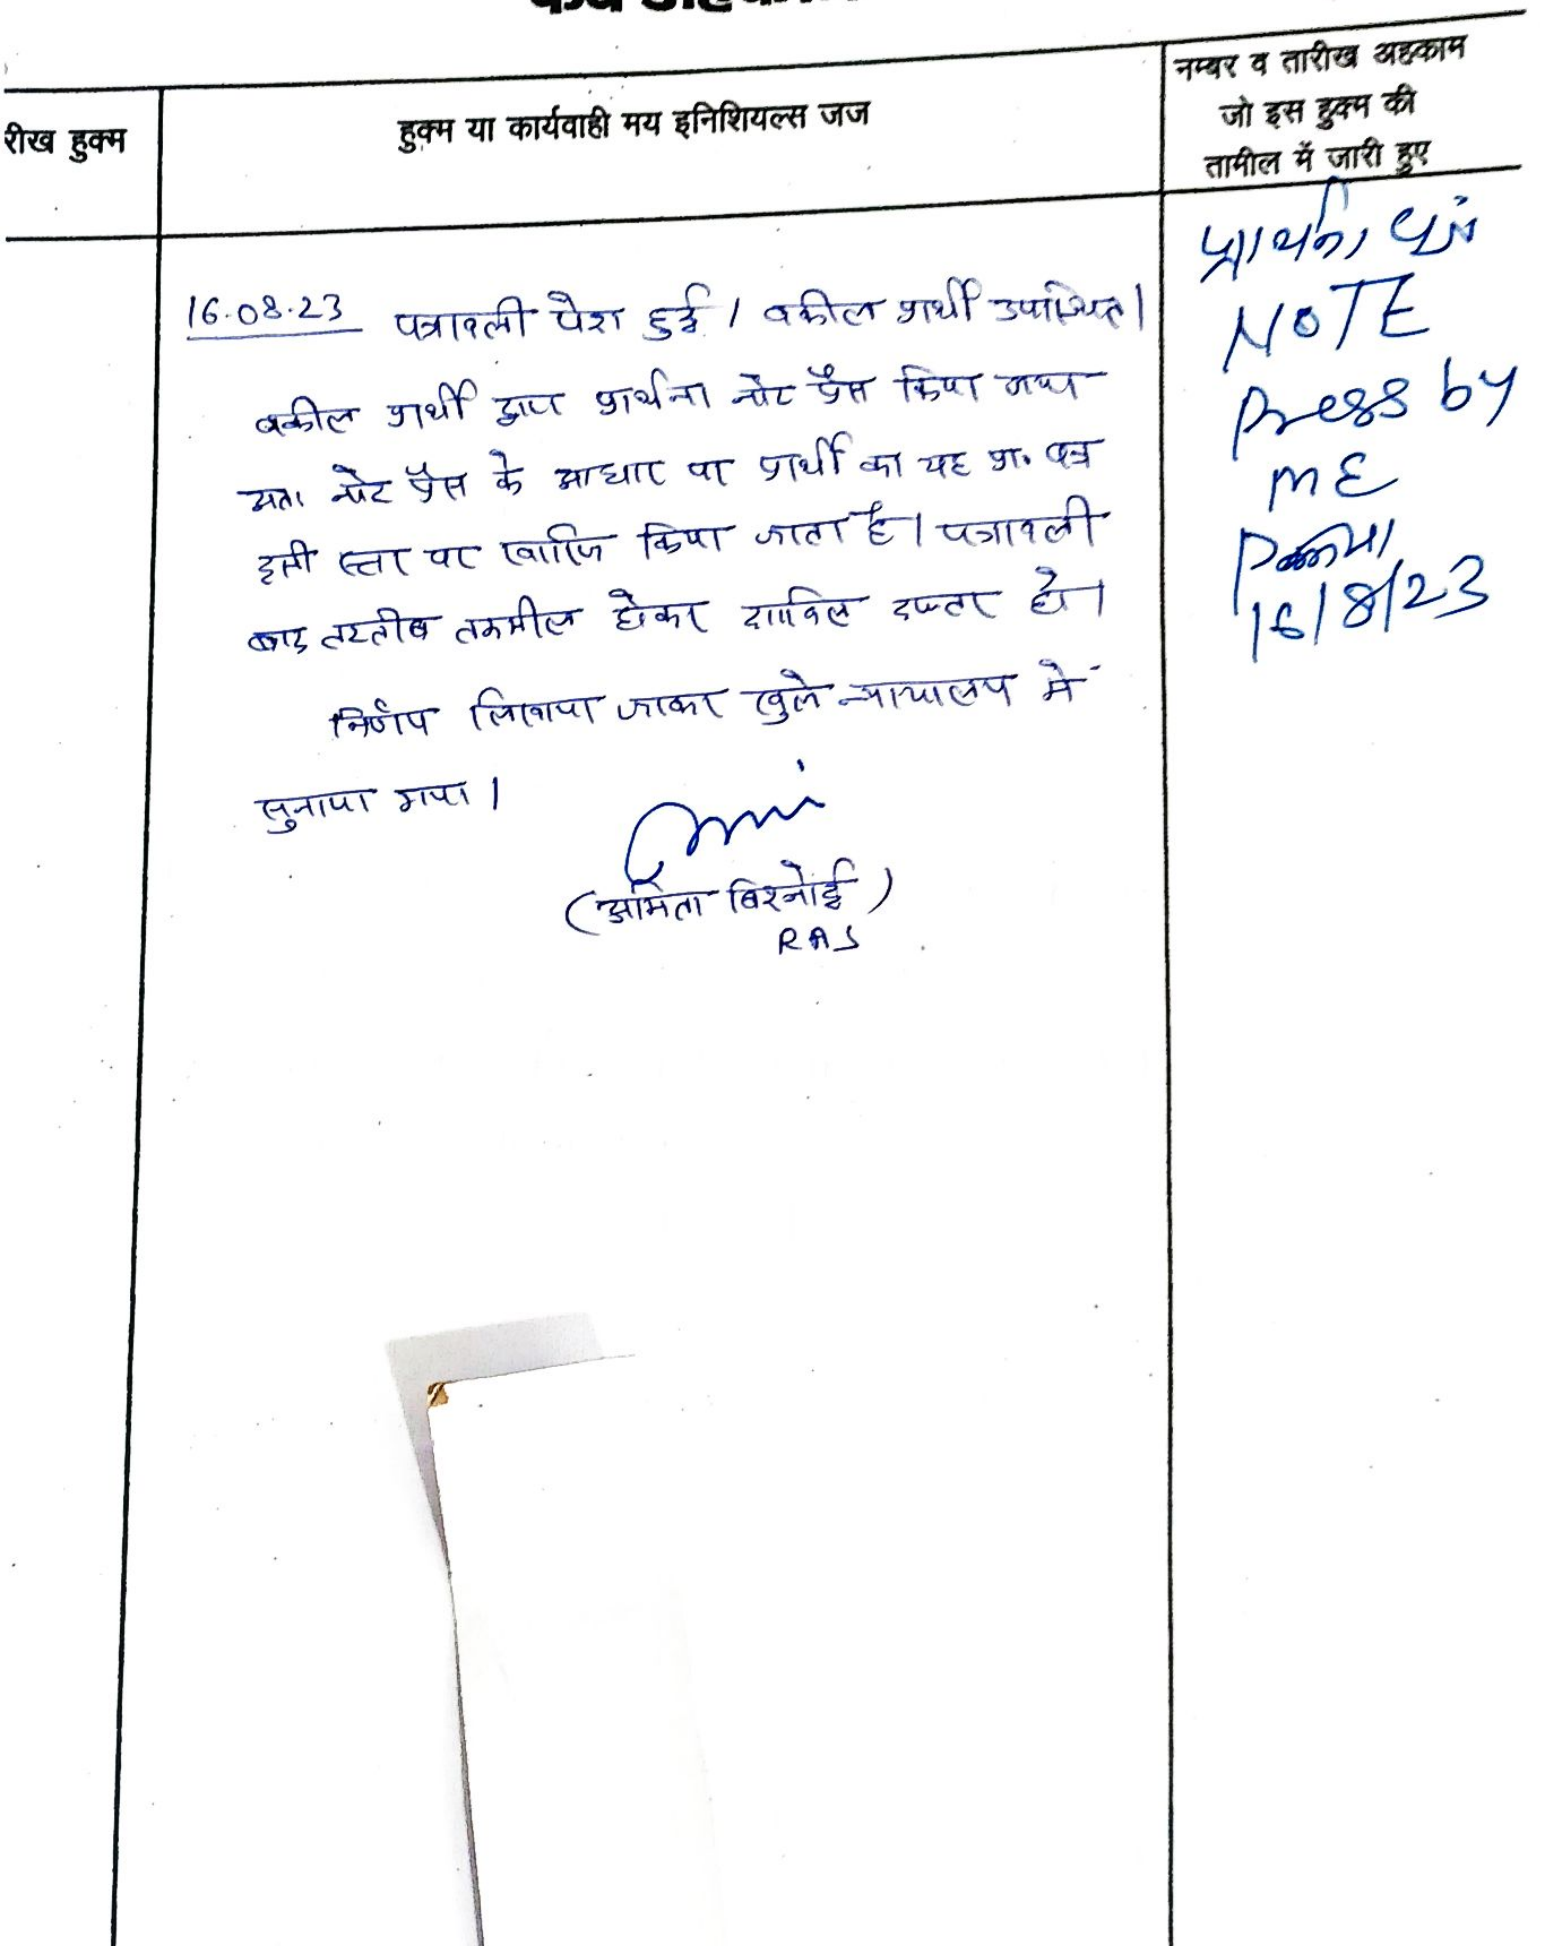 रीख हुक्म
हुक्म या कार्यवाही मय इनिशियल्स जज
नम्बर व तारीख अहकाम
जो इस हुक्म की
तामील में जारी हुए
16.08.23 पत्रावली पेश हुई। वकील प्रार्थी उपस्थित।
वकील प्रार्थी द्वारा प्रार्थना नोट प्रैस किया गया
अतः नोट प्रैस के आधार पर प्रार्थी का यह प्रा. पत्र
इसी स्तर पर खारिज किया जाता है। पत्रावली
बाद तरतीब तकमील होकर दाखिल दफ्तर हो।
निर्णय लिखाया जाकर खुले न्यायालय में
सुनाया गया।
(अमिता बिश्नोई)
RAS
प्रार्थना पत्र
NOTE
Press by
ME
16/8/23